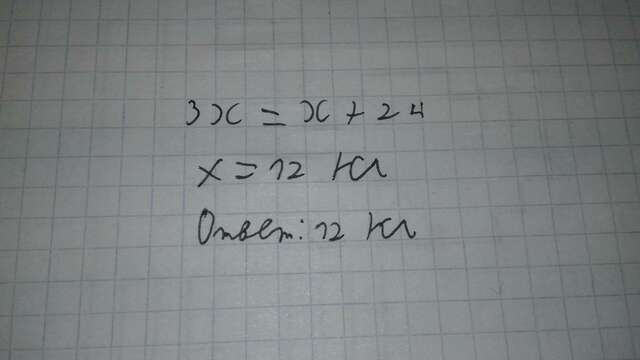 3x = x + 24
x = 12 кг
Ответ: 12 кг